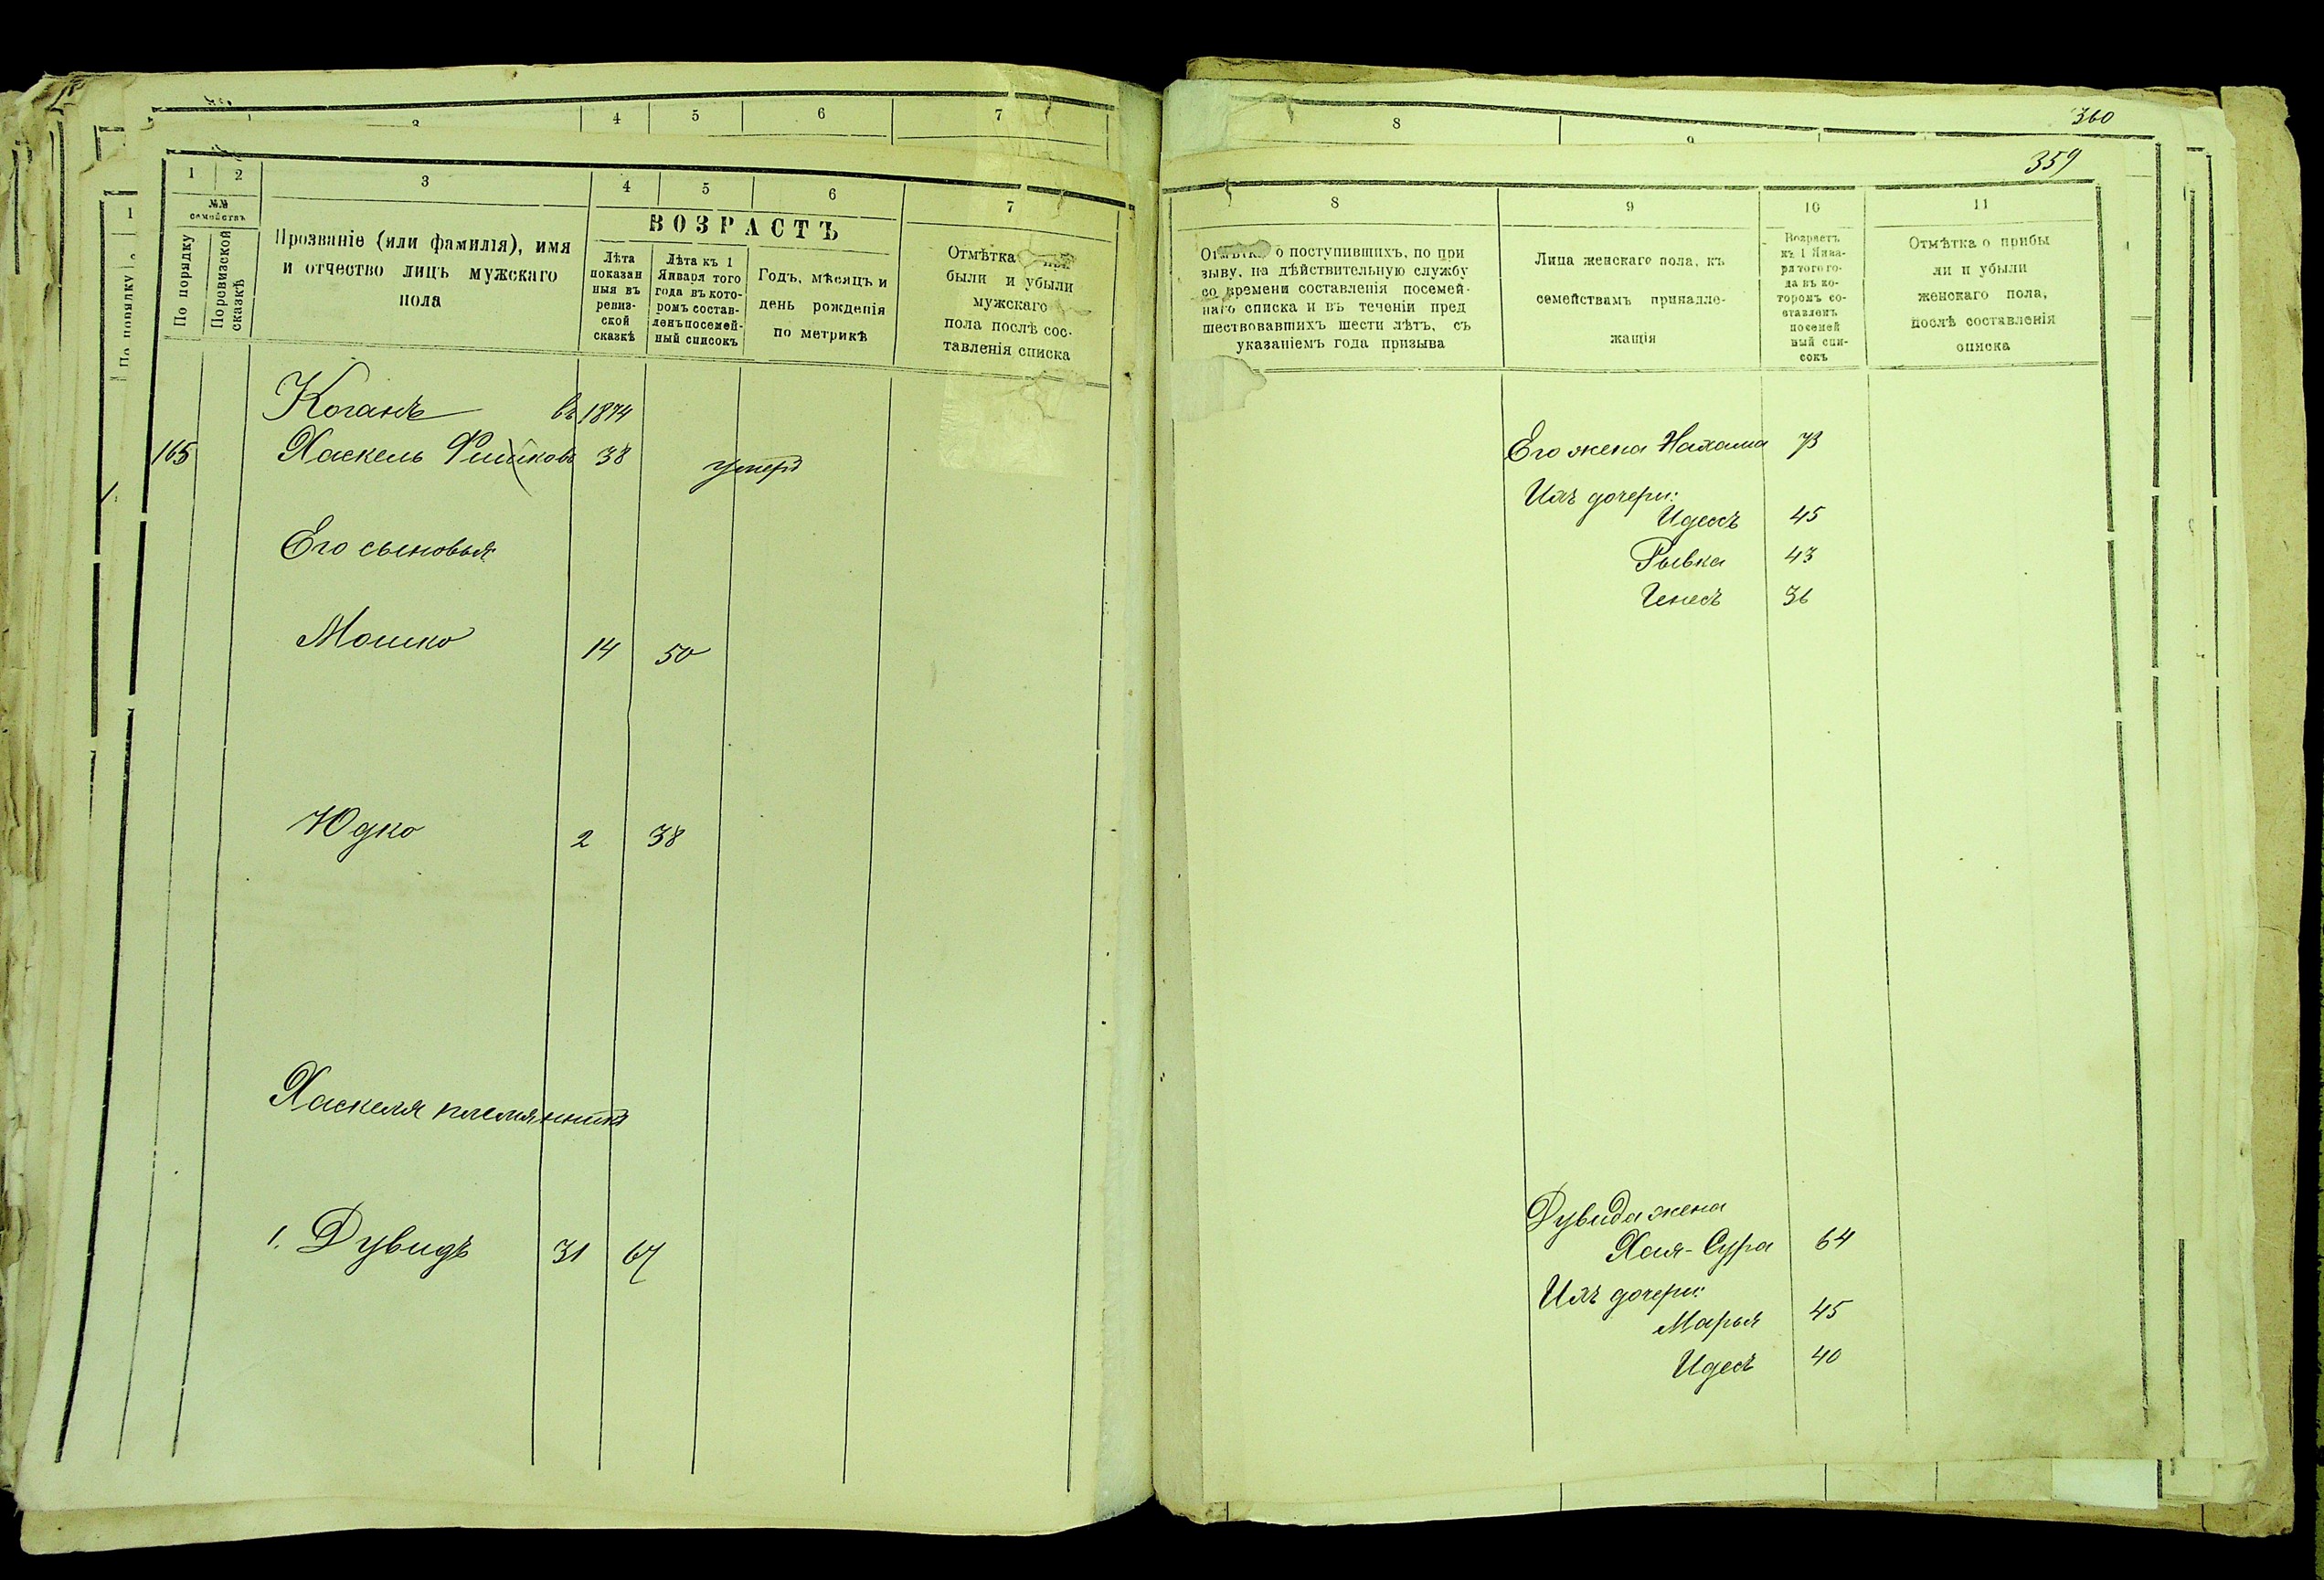 3 4 5 6 7
8 9
360
359
1 2 3 4 5 6 7
№№ семействъ
По порядку
По ревизской сказкѣ
Прозваніе (или фамилія), имя
и отчество лицъ мужскаго
пола
ВОЗРАСТЪ
Лѣта
показан
ныя въ
ревиз-
ской
сказкѣ
Лѣта къ 1
Января того
года въ кото-
ромъ состав-
ленъ посемей-
ный списокъ
Годъ, мѣсяцъ и
день рожденія
по метрикѣ
Отмѣтка при
были и убыли
мужскаго
пола послѣ сос-
тавленія списка
Коганъ въ 1874
165 Хаскель Фишковъ 38 умеръ
Его сыновья:
Мошко 14 50
Юдко 2 38
Хаскеля племянникъ
1. Дувидъ 31 67
1
По порядку
8 9 10 11
Отмѣтка о поступившихъ, по при
зыву, на дѣйствительную службу
со времени составленія посемей-
наго списка и въ теченіи пред
шествовавшихъ шести лѣтъ, съ
указаніемъ года призыва
Лица женскаго пола, къ
семействамъ принадле-
жащія
Возрастъ
къ 1 Янва-
ря того го-
да въ ко-
торомъ со-
ставленъ
посемей
ный спи-
сокъ
Отмѣтка о прибы
ли и убыли
женскаго пола,
послѣ составленія
списка
Его жена Нахама 73
Ихъ дочери:
Идесъ 45
Рывка 43
Генесъ 36
Дувида жена
Хая-Сура 64
Ихъ дочери:
Марья 45
Идесъ 40